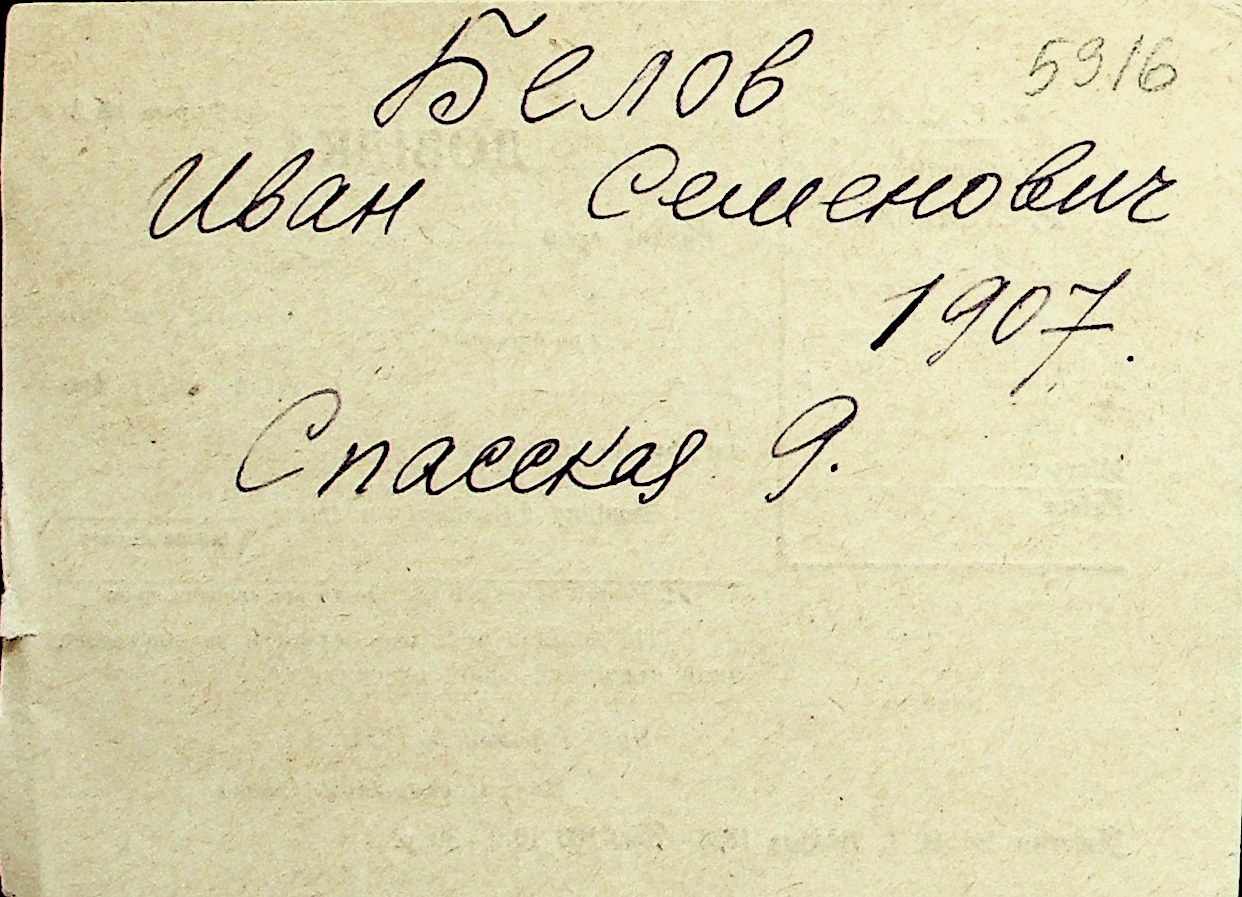 5916
Белов
Иван Семенович
1907.
Спасская 9.